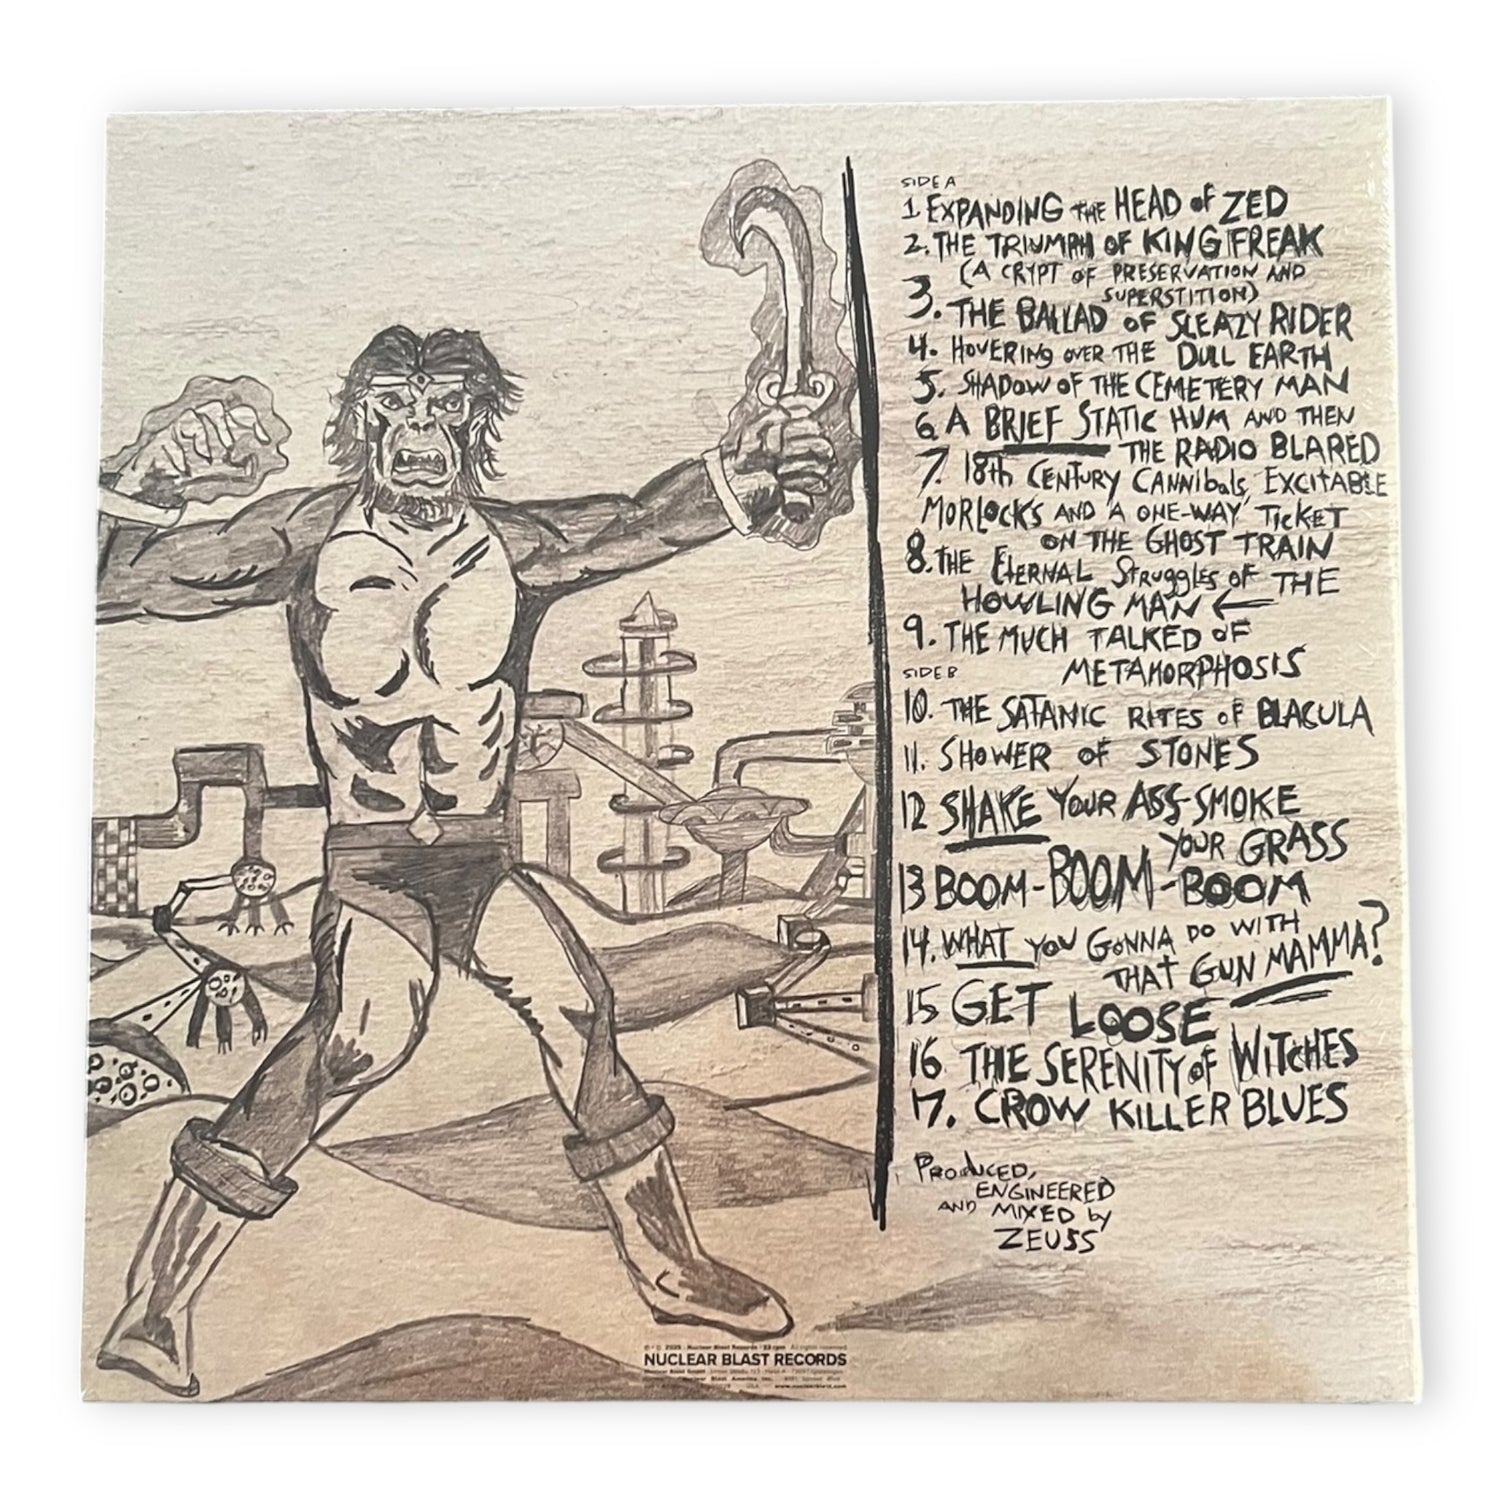 SIDE A
1. EXPANDING THE HEAD OF ZED
2. THE TRIUMPH OF KING FREAK
(A CRYPT OF PRESERVATION AND
SUPERSTITION)
3. THE BALLAD OF SLEAZY RIDER
4. HOVERING OVER THE DULL EARTH
5. SHADOW OF THE CEMETERY MAN
6. A BRIEF STATIC HUM AND THEN
THE RADIO BLARED
7. 18th CENTURY CANNIbals, EXCITABLE
MORLOCKS AND A ONE-WAY TICKET
ON THE GHOST TRAIN
8. THE ETERNAL STRuggLES OF THE
HOWLING MAN ←
9. THE MUCH TALKED OF
METAMORPHOSIS
SIDE B
10. THE SATANIC RITES OF BLACULA
11. SHOWER OF STONES
12 SHAKE YOUR ASS-SMOKE
YOUR GRASS
13 BOOM-BOOM-BOOM
14. WHAT YOU GONNA DO WITH
THAT GUN MAMMA?
15 GET LOOSE
16 THE SERENITY OF WITCHES
17. CROW KILLER BLUES
PRODUCED,
ENGINEERED
AND MIXED by
ZEUSS
Nuclear Blast Records · 33 rpm All rights reserved
NUCLEAR BLAST RECORDS
Nuclear Blast America, Inc.
USA www.nuclearblast.com